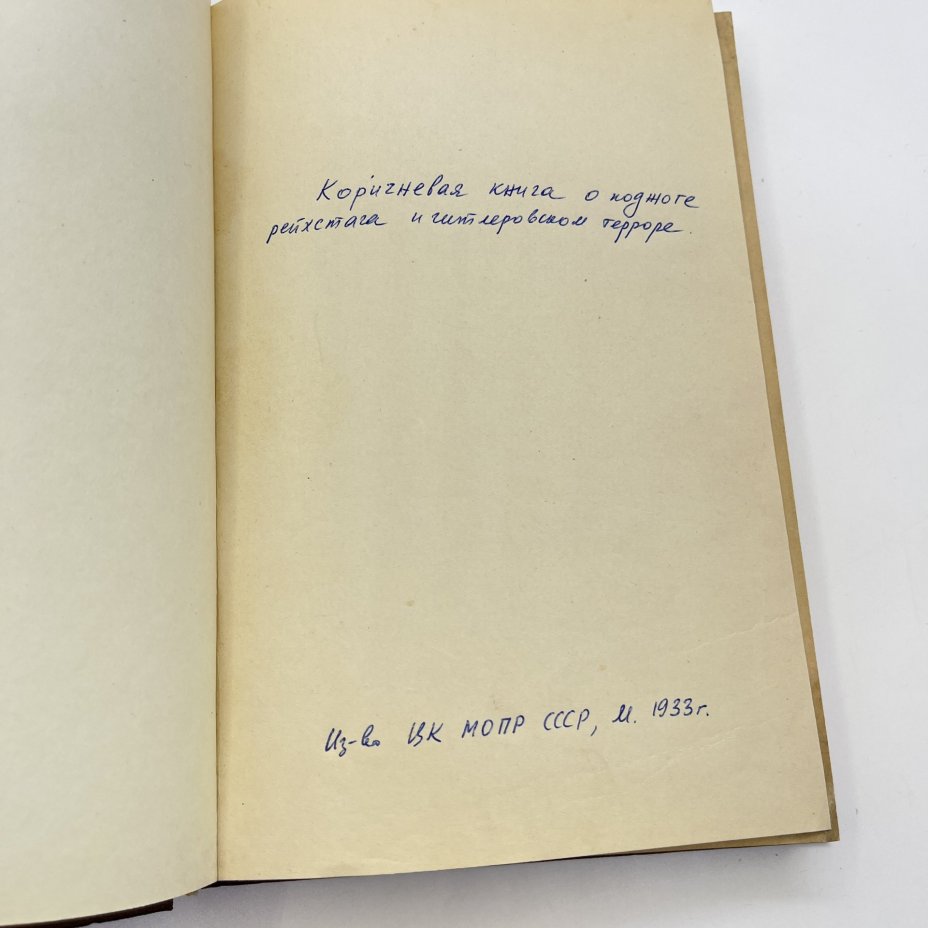 Коричневая книга о поджоге
рейхстага и гитлеровском терроре.
Из-во ЦК МОПР СССР, М. 1933 г.